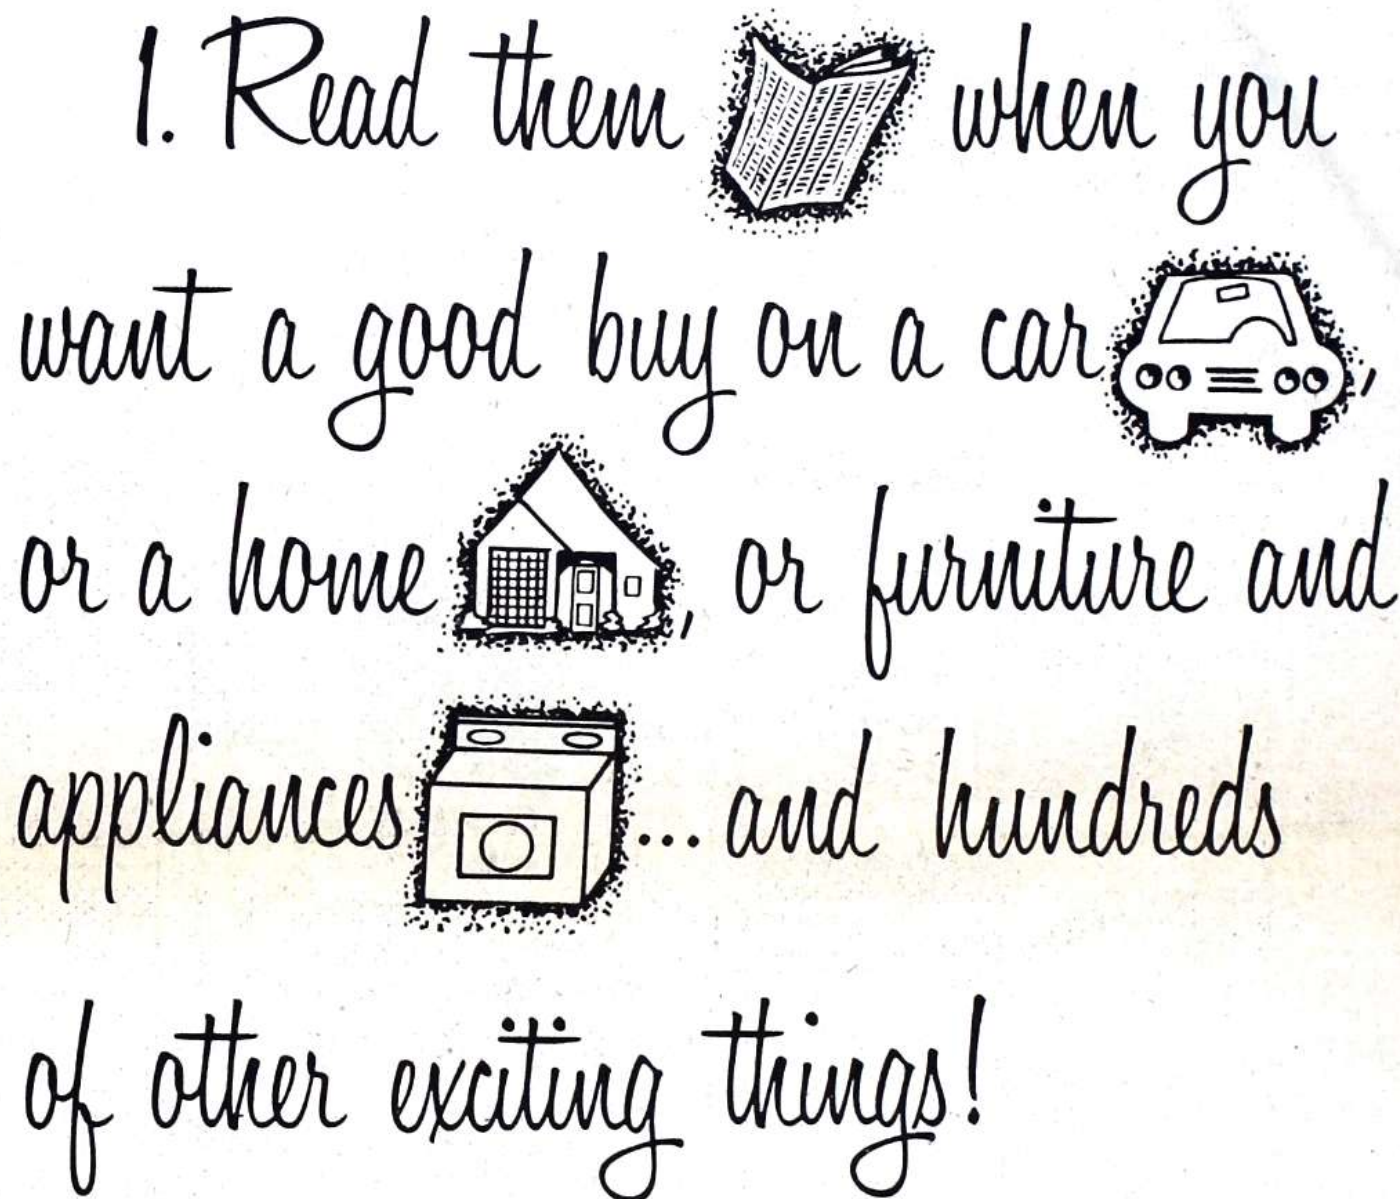 1. Read them when you
want a good buy on a car,
or a home, or furniture and
appliances... and hundreds
of other exciting things!